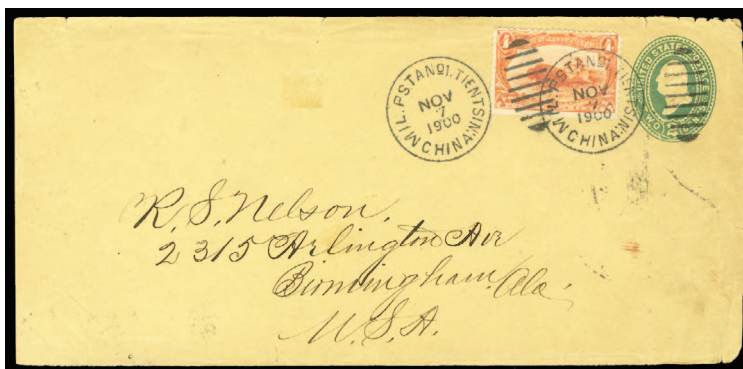 MIL. P. STA. NO 1. TIENTSIN
NOV
7
1900
CHINA
MIL. P. STA. NO 1. TIENTSIN
NOV
7
1900
CHINA
4
4
UNITED STATES
TWO
R. S. Nelson.
2315 Arlington Ave
Birmingham, Ala.
U.S.A.